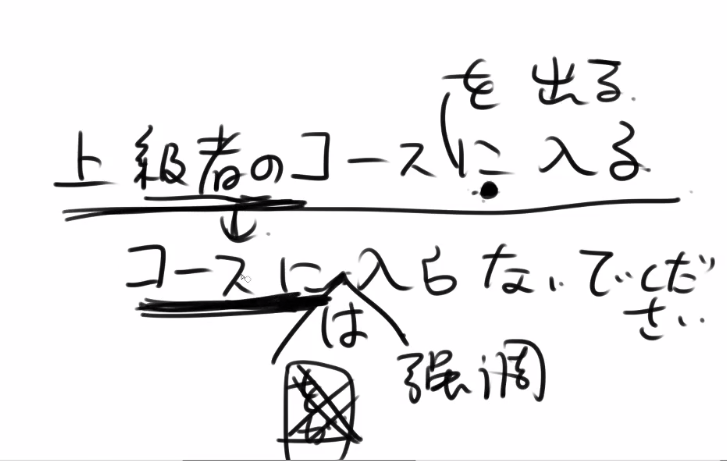 を 出る
上級者のコースに 入る
コースに 入らないでくだ
さい
は
強調